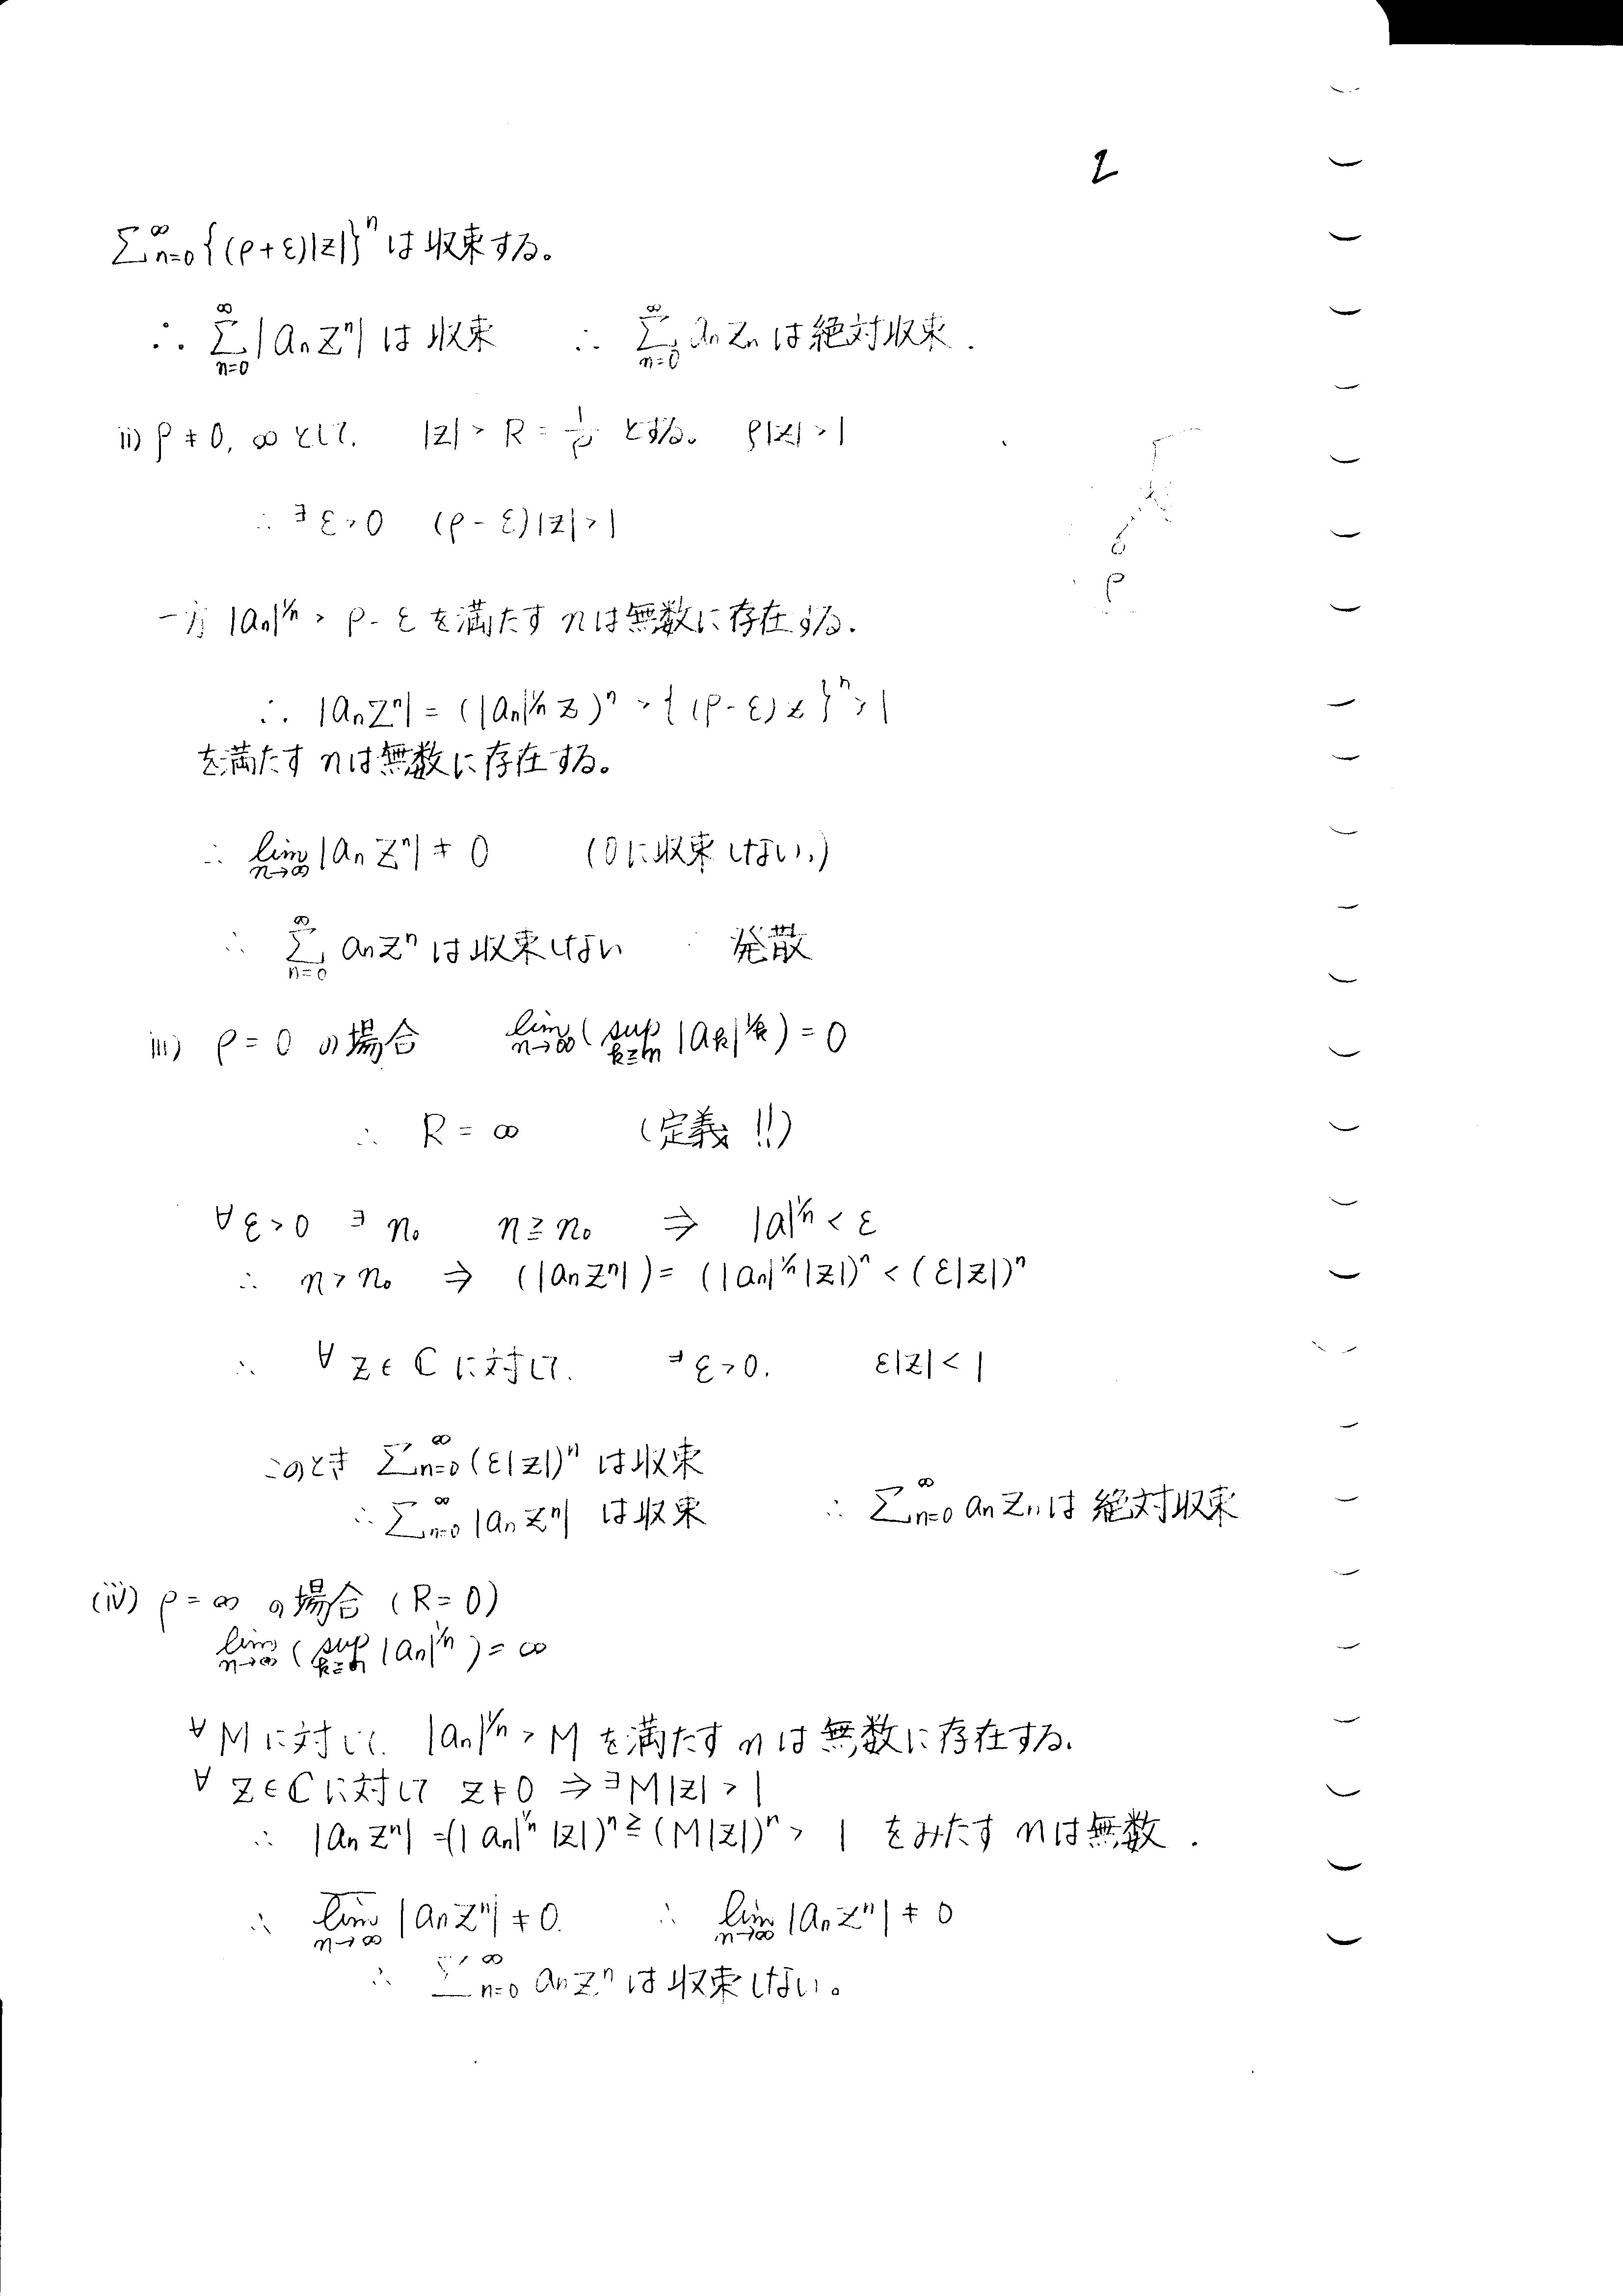 2
∑_{n=0}^∞ {(ρ+ε)|z|}^n は収束する。
∴ ∑_{n=0}^∞ |a_n z^n| は収束 ∴ ∑_{n=0}^∞ a_n z_n は絶対収束.
ii) ρ≠0, ∞ として. |z| > R = 1/ρ とする。 ρ|z| > 1
∴ ∃ε>0 (ρ-ε)|z| > 1
一方 |a_n|^{1/n} > ρ-ε を満たす n は無数に存在する.
∴ |a_n z^n| = (|a_n|^{1/n} z)^n > {(ρ-ε)z}^n > 1
を満たす n は無数に存在する。
∴ lim_{n→∞} |a_n z^n| ≠ 0 (0に収束しない.)
∴ ∑_{n=0}^∞ a_n z^n は収束しない 発散
iii) ρ=0 の場合 lim_{n→∞} (sup_{k≧n} |a_k|^{1/k}) = 0
∴ R=∞ (定義!!)
∀ε>0 ∃n_0 n≧n_0 ⇒ |a|^{1/n} < ε
∴ n>n_0 ⇒ (|a_n z^n|) = (|a_n|^{1/n}|z|)^n < (ε|z|)^n
∴ ∀z∈ℂ に対して. ∃ε>0. ε|z|<1
このとき ∑_{n=0}^∞ (ε|z|)^n は収束
∴ ∑_{n=0}^∞ |a_n z^n| は収束 ∴ ∑_{n=0}^∞ a_n z_n は絶対収束
(iv) ρ=∞ の場合 (R=0)
lim_{n→∞} (sup_{k≧n} |a_n|^{1/n}) = ∞
∀M に対して. |a_n|^{1/n} > M を満たす n は無数に存在する.
∀z∈ℂ に対して z≠0 ⇒ ∃M|z|>1
∴ |a_n z^n| = (|a_n|^{1/n} |z|)^n ≧ (M|z|)^n > 1 をみたす n は無数.
∴ \overline{lim}_{n→∞} |a_n z^n| ≠ 0. ∴ lim_{n→∞} |a_n z^n| ≠ 0
∴ ∑_{n=0}^∞ a_n z^n は収束しない。
ρ